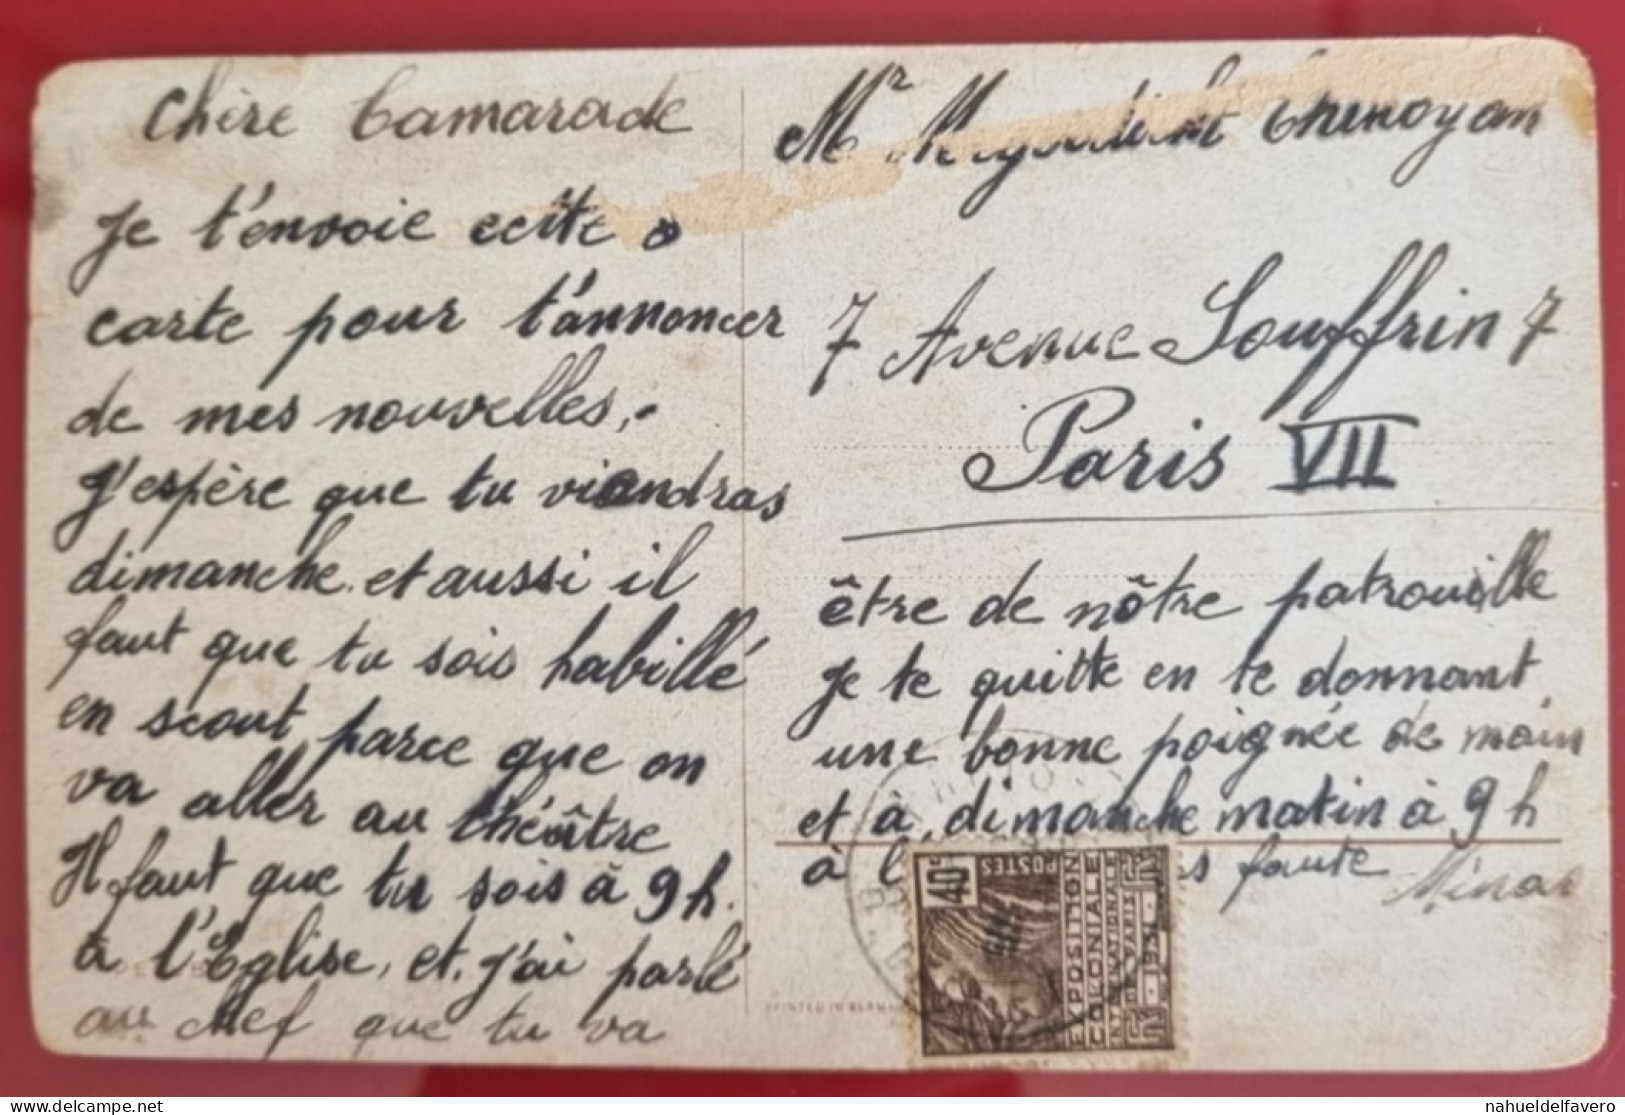 Chère Camarade
Je t'envoie cette
carte pour t'annoncer
de mes nouvelles,-
J'espère que tu viendras
dimanche. et aussi il
faut que tu sois habillé
en scout, parce que on
va aller au théâtre
Il faut que tu sois à 9 h.
à l'Eglise, et. j'ai parlé
au chef que tu va
Mr Chenoyan
7 Avenue Souffrin 7
Paris VII
être de nôtre patrouille
je te quitte en te donnant
une bonne poignée de main
et à, dimanche matin à 9 h
à faute
Minas
PRINTED IN GERMANY
40c
POSTES
EXPOSITION
COLONIALE
INTERNATIONALE
DE PARIS
1931
http://www.delcampe.net
nahueldelfavero